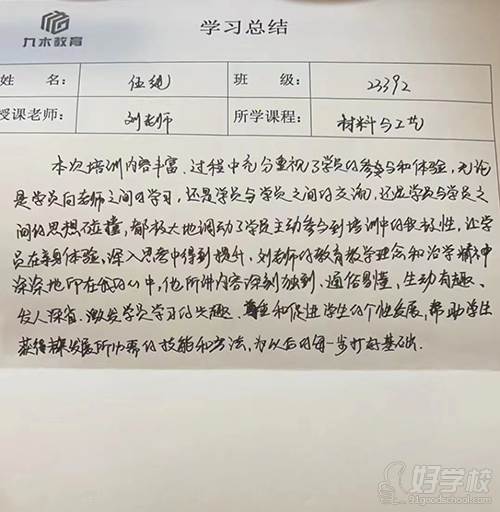 九木教育
学习总结
姓 名: 伍艳 班 级: 23392
授课老师: 刘老师 所学课程: 材料与工艺
本次培训内容丰富、过程中充分重视了学员的参与和体验,无论
是学员向老师之间的学习,还是学员与学员之间的交流,还是学员与学员之
间的思想碰撞,都极大地调动了学员主动参与到培训中的积极性,让学
员在亲身体验,深入思考中得到提升,刘老师的教育教学理念和治学精神
深深地印在我的心中,他所讲内容深刻独到、通俗易懂,生动有趣、
发人深省、激发学员学习的兴趣、尊重和促进学生的个性发展,帮助学生
获得未来发展所必需的技能和方法,为以后的每一步打好基础.
好学校
www.91goodschool.com